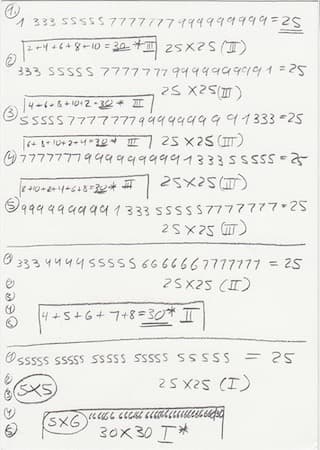 ①
1 333 55555 7777777 999999999 = 25
2+4+6+8+10=30* III 25X25 (III)
②
333 55555 7777777 999999999 1 = 25
25 X25 (III)
4+6+8+10+2=30* III
③ 55555 7777777 999999999 1 333 = 25
6+8+10+2+4=30* III 25X25 (III)
④ 7777777 999999999 1 333 55555 = 25
8+10+2+4+6=30* III 25X25 (III)
⑤ 999999999 1 333 55555 7777777 = 25
25 X25 (III)
① 333 4444 55555 666666 7777777 = 25
② 25X25 (II)
③
④ 4+5+6+7+8=30* II
⑤
① 55555 55555 55555 55555 55555 = 25
②
③ 5X5 25X25 (I)
④
⑤ 5X6 30X30 I*